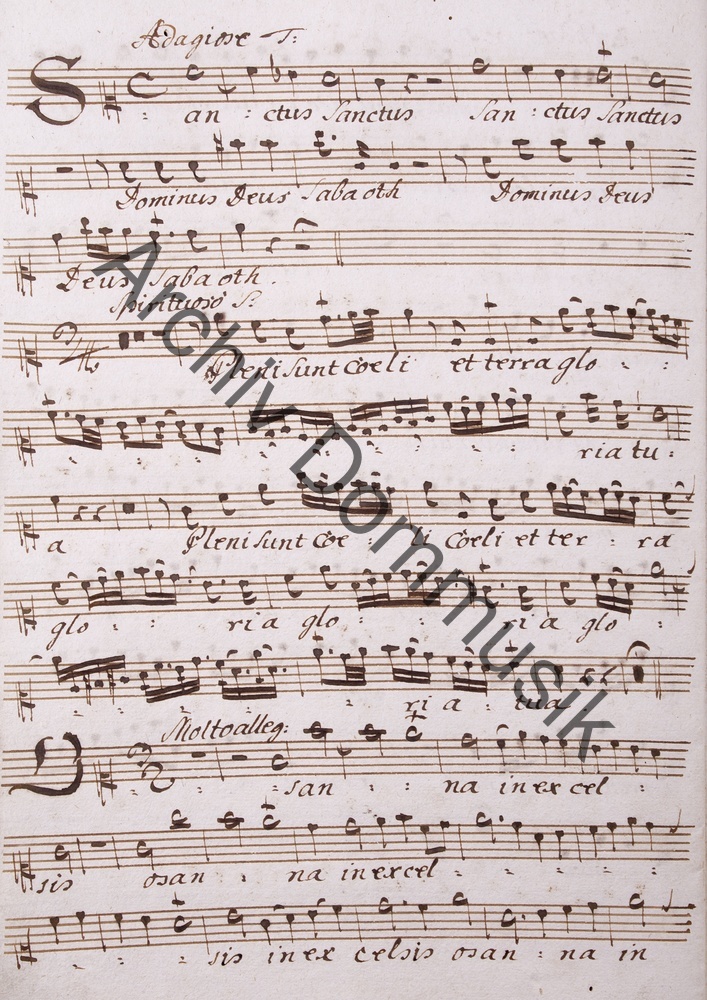 Adagiose T:
San : ctus Sanctus San : ctus Sanctus
Dominus Deus Sabaoth Dominus Deus
Deus Sabaoth.
Spirituoso S:
2/4
Pleni sunt Coeli et terra glo : :
ria tu :
a Pleni sunt Coe : li Coeli et ter : ra
glo : : ria glo : : ria glo :
ria : tua
Molto alleg:
Osan : : na in excel :
sis osan : : na in excel : : : :
: : : sis in ex celsis osan : na in
Archiv Dommusik